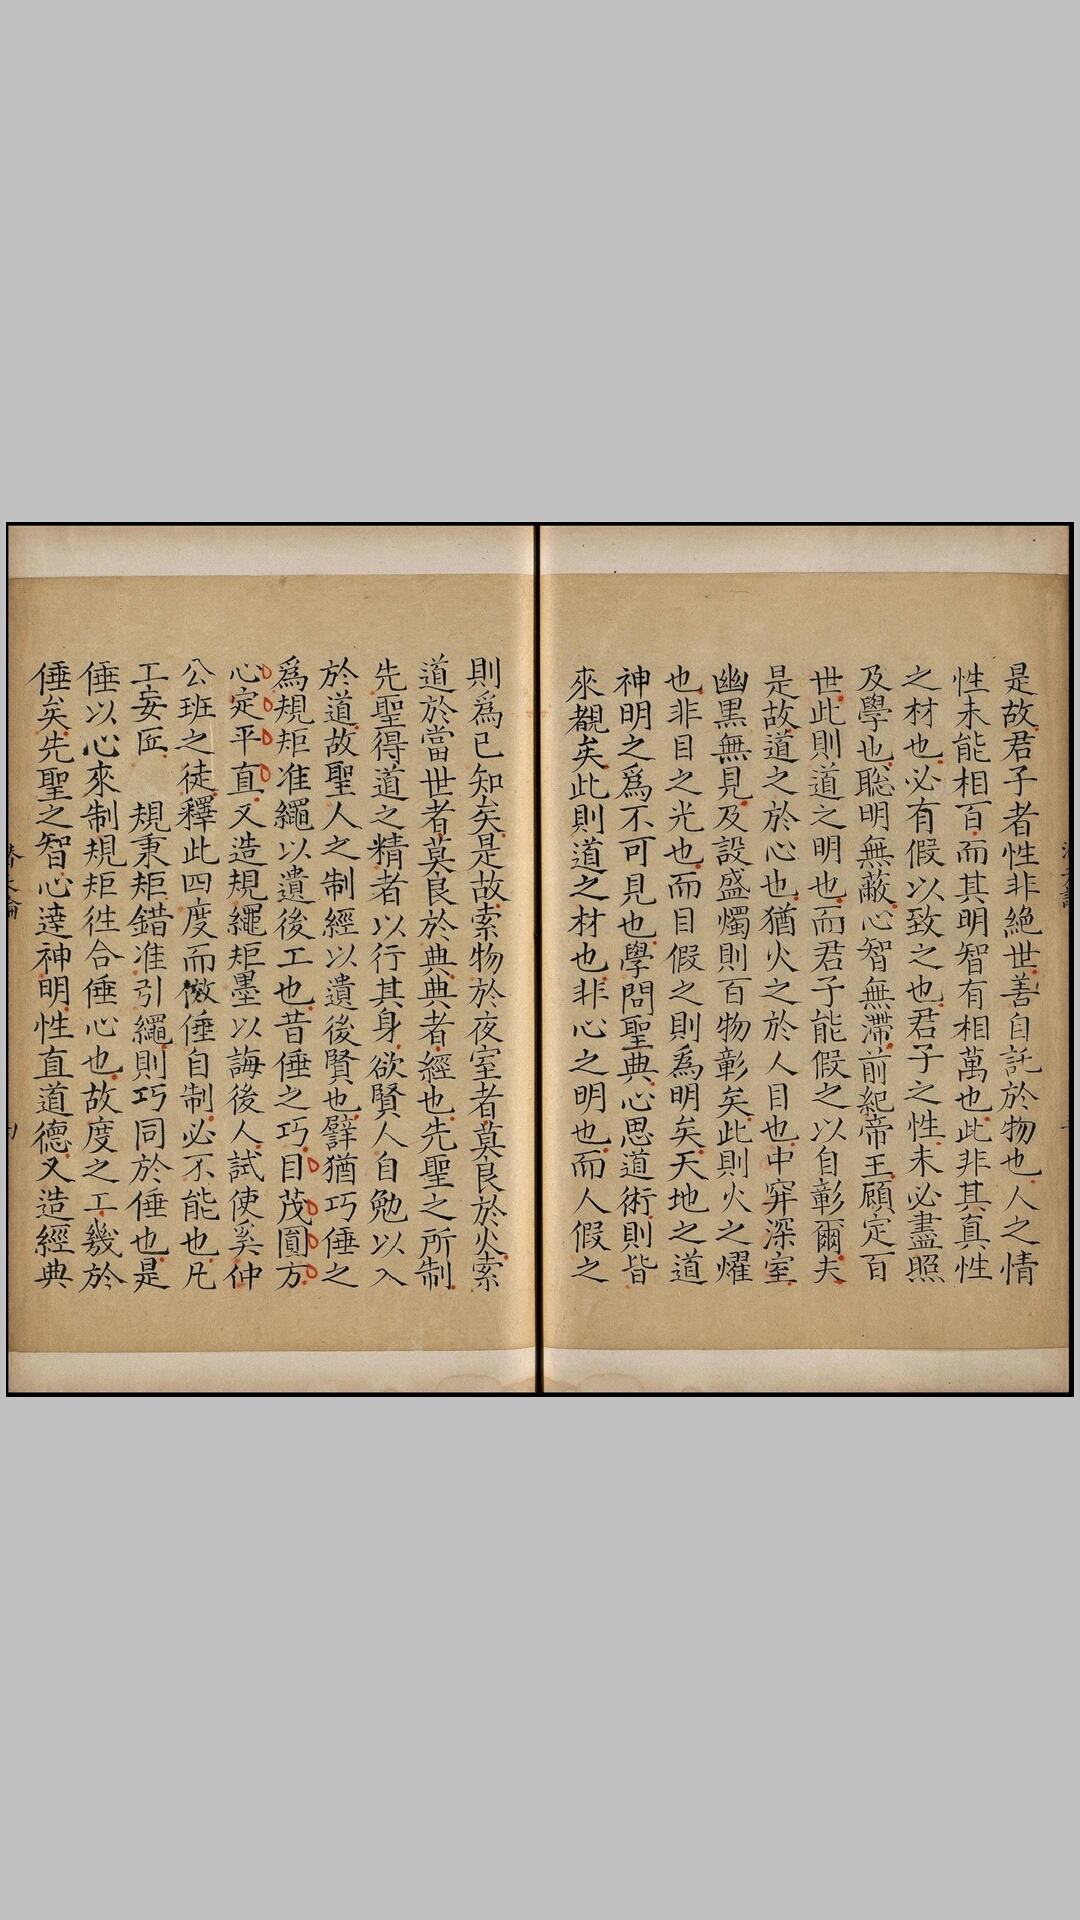 是故君子者性非絶世善自託於物也人之情
性未能相百而其明智有相萬也此非其真性
之材也必有假以致之也君子之性未必盡照
及學也聡明無蔽心智無滯前紀帝王顧定百
世此則道之明也而君子能假之以自彰爾夫
是故道之於心也猶火之於人目也中穽深室
幽黒無見及設盛燭則百物彰矣此則火之燿
也非目之光也而目假之則爲明矣天地之道
神明之爲不可見也學問聖典心思道術則皆
來覩矣此則道之材也非心之明也而人假之
則爲已知矣是故索物於夜室者莫良於火索
道於當世者莫良於典典者經也先聖之所制
先聖得道之精者以行其身欲賢人自勉以入
於道故聖人之制經以遺後賢也譬猶巧倕之
爲規矩准繩以遺後工也昔倕之巧目茂圓方
心定平直又造規繩矩墨以誨後人試使奚仲
公班之徒釋此四度而倣倕自制必不能也凡
工妄匠 規秉矩錯准引繩則巧同於倕也是
倕以心來制規矩徃合倕心也故度之工幾於
倕矣先聖之智心達神明性直道德又造經典